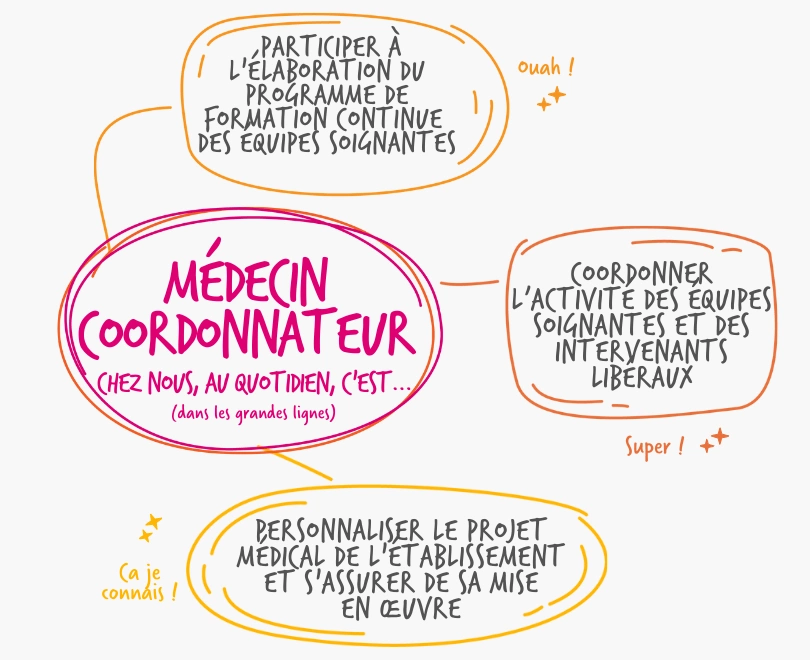 PARTICIPER À
L'ÉLABORATION DU
PROGRAMME DE
FORMATION CONTINUE
DES ÉQUIPES SOIGNANTES
Ouah !
MÉDECIN
COORDONNATEUR
CHEZ NOUS, AU QUOTIDIEN, C'EST...
(dans les grandes lignes)
COORDONNER
L'ACTIVITÉ DES ÉQUIPES
SOIGNANTES ET DES
INTERVENANTS
LIBÉRAUX
Super !
Ca je
connais !
PERSONNALISER LE PROJET
MÉDICAL DE L'ÉTABLISSEMENT
ET S'ASSURER DE SA MISE
EN ŒUVRE